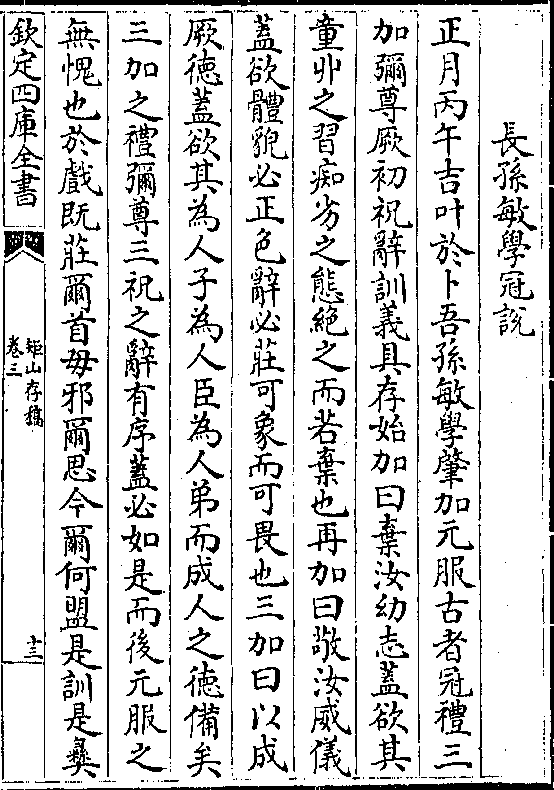 長孫敏學冠說
正月丙午吉叶於卜吾孫敏學肇加元服古者冠禮三
加彌尊厥初祝辭訓義具存始加曰棄汝幼志蓋欲其
童丱之習痴劣之態絶之而若棄也再加曰敬汝威儀
蓋欲體貌必正色辭必莊可象而可畏也三加曰以成
厥徳蓋欲其為人子為人臣為人弟而成人之徳備矣
三加之禮彌尊三祝之辭有序蓋必如是而後元服之
無愧也於戲既莊爾首毋邪爾思今爾何盟是訓是彝
欽定四庫全書
矩山存稿
卷三
十三